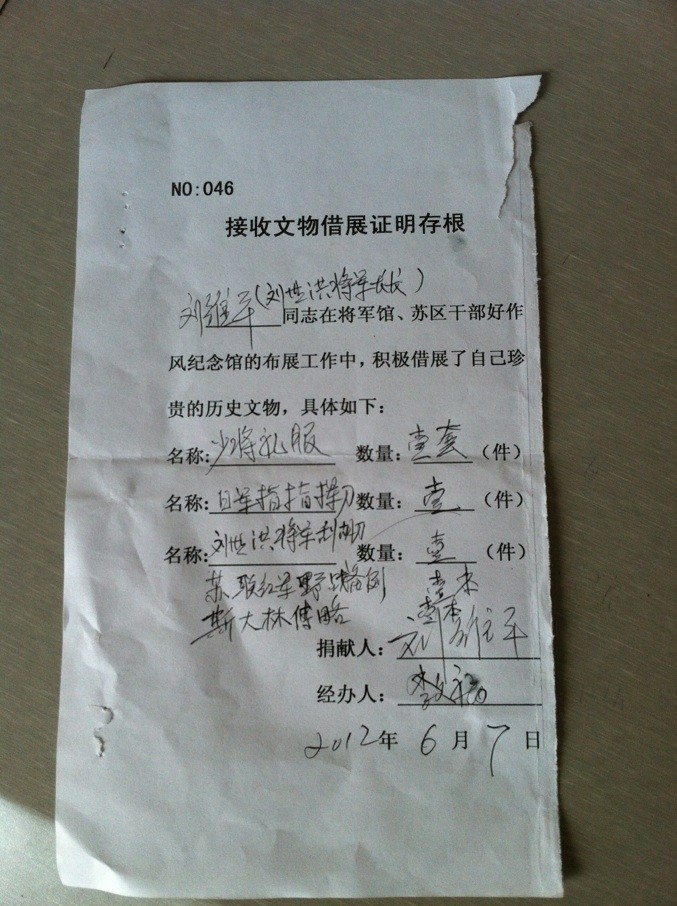 NO:046
接收文物借展证明存根
刘维军(刘世洪将军长子)
同志在将军馆、苏区干部好作
风纪念馆的布展工作中，积极借展了自己珍
贵的历史文物，具体如下：
名称：少将礼服 数量：壹套 （件）
名称：日军指挥刀 数量：壹 （件）
名称：刘世洪将军剃刀 数量：壹 （件）
苏联红军野战条例 壹本
斯大林传略 壹本
捐献人：刘维军
经办人：李
2012年6月7日